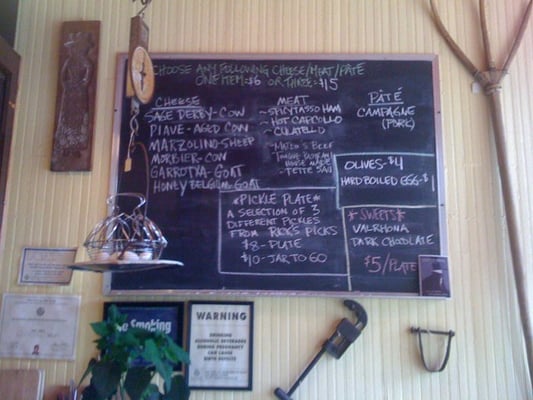 CHOOSE ANY FOLLOWING CHEESE/MEAT/PÂTÉ
ONE ITEM=$6 OR THREE=$15
CHEESE
SAGE DERBY-COW
PIAVE-AGED COW
MARZOLINO-SHEEP
MORBIER-COW
GARROTXA-GOAT
HONEY BELGIUM-GOAT
MEAT
~SPICY TASSO HAM
~HOT CAPCOLLO
~CULATELLO
HOUSE MADE
PÂTÉ
CAMPAGNE
(PORK)
OLIVES-$4
HARD BOILED EGG-$1
*PICKLE PLATE*
A SELECTION OF 3
DIFFERENT PICKLES
FROM RICK'S PICKS
$8-PLATE
$10-JAR TO GO
*SWEETS*
VALRHONA
DARK CHOCOLATE
$5/PLATE
No Smoking
WARNING
DRINKING
ALCOHOLIC BEVERAGES
DURING PREGNANCY
CAN CAUSE
BIRTH DEFECTS